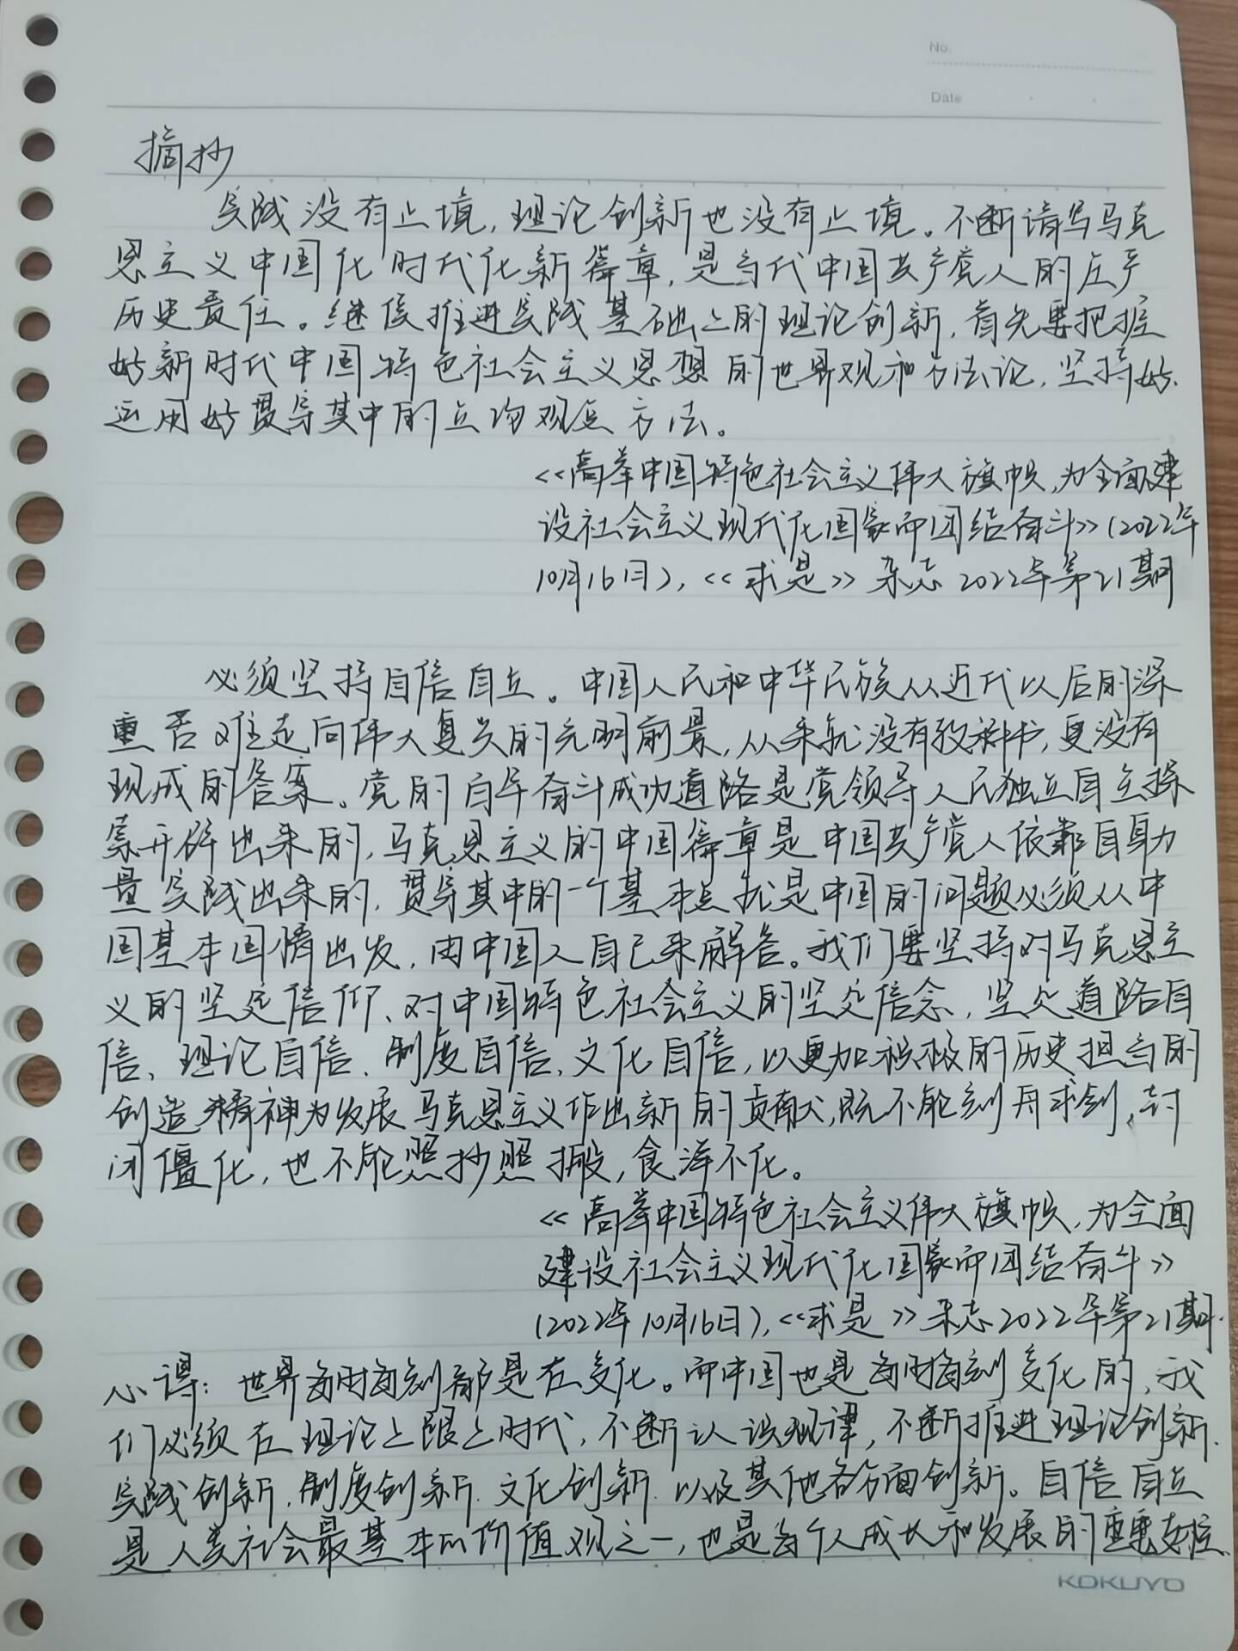 No.
Date
摘抄
实践没有止境，理论创新也没有止境。不断谱写马克
思主义中国化时代化新篇章，是当代中国共产党人的庄严
历史责任。继续推进实践基础上的理论创新，首先要把握
好新时代中国特色社会主义思想的世界观和方法论，坚持好、
运用好贯穿其中的立场观点方法。
《高举中国特色社会主义伟大旗帜，为全面建
设社会主义现代化国家而团结奋斗》（2022年
10月16日），《求是》杂志2022年第21期
必须坚持自信自立。中国人民和中华民族从近代以后的深
重苦难走向伟大复兴的光明前景，从来就没有教科书，更没有
现成的答案。党的百年奋斗成功道路是党领导人民独立自主探
索开辟出来的，马克思主义的中国篇章是中国共产党人依靠自身力
量实践出来的，贯穿其中的一个基本点就是中国的问题必须从中
国基本国情出发，由中国人自己来解答。我们要坚持对马克思主
义的坚定信仰、对中国特色社会主义的坚定信念，坚定道路自
信、理论自信、制度自信、文化自信，以更加积极的历史担当的
创造精神为发展马克思主义作出新的贡献，既不能刻舟求剑、封
闭僵化，也不能照抄照搬，食洋不化。
《高举中国特色社会主义伟大旗帜，为全面
建设社会主义现代化国家而团结奋斗》
（2022年10月16日），《求是》杂志2022年第21期.
心得：世界每时每刻都是在变化。而中国也是每时每刻变化的，我
们必须在理论上跟上时代，不断认识规律，不断推进理论创新、
实践创新、制度创新、文化创新、以及其他各方面创新。自信自立
是人类社会最基本的价值观之一，也是每个人成长和发展的重要支柱.
KOKUYO